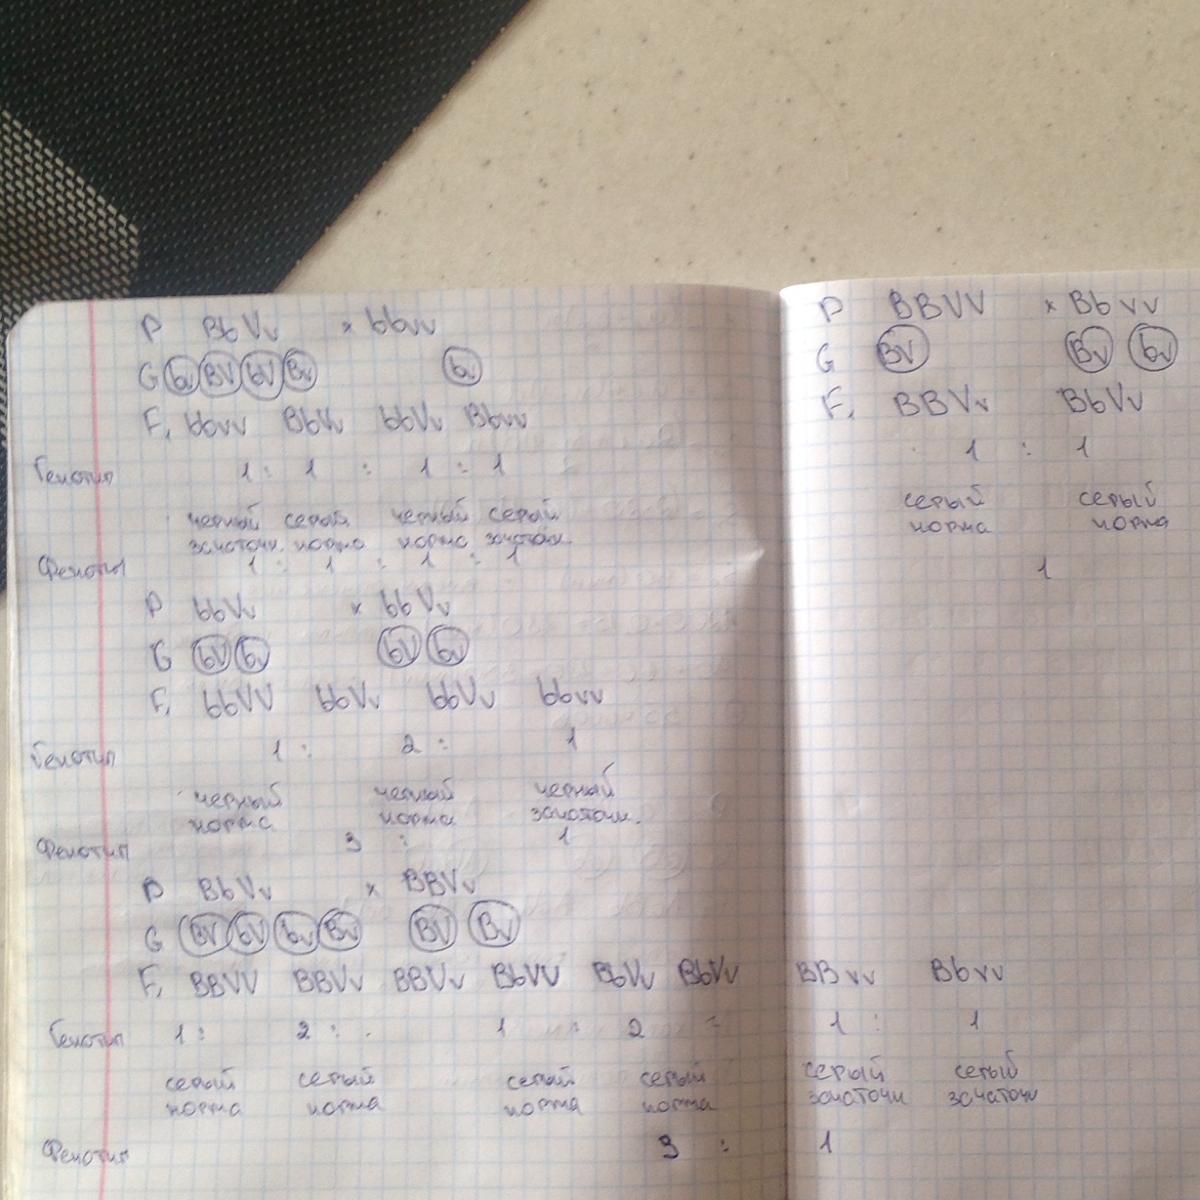 P BbVv × bbvv
G bv BV bV Bv bv
F₁ bbvv BbVv bbVv Bbvv
Генотип 1 : 1 : 1 : 1
черный серый черный серый
зачаточн. норма норма зачаточн.
Фенотип 1 : 1 : 1 : 1
P bbVv × bbVv
G bV bv bV bv
F₁ bbVV bbVv bbVv bbvv
Генотип 1 : 2 : 1
черный черный черный
норма норма зачаточн.
Фенотип 3 : 1
P BbVv × BBVv
G BV bV bv Bv BV Bv
F₁ BBVV BBVv BBVv BbVV BbVv BbVv BBvv Bbvv
Генотип 1 : 2 : 1 : 2 : 1 : 1
серый серый серый серый серый серый
норма норма норма норма зачаточн зачаточн
Фенотип 3 : 1
P BBVV × Bbvv
G BV Bv bv
F₁ BBVv BbVv
1 : 1
серый серый
норма норма
1